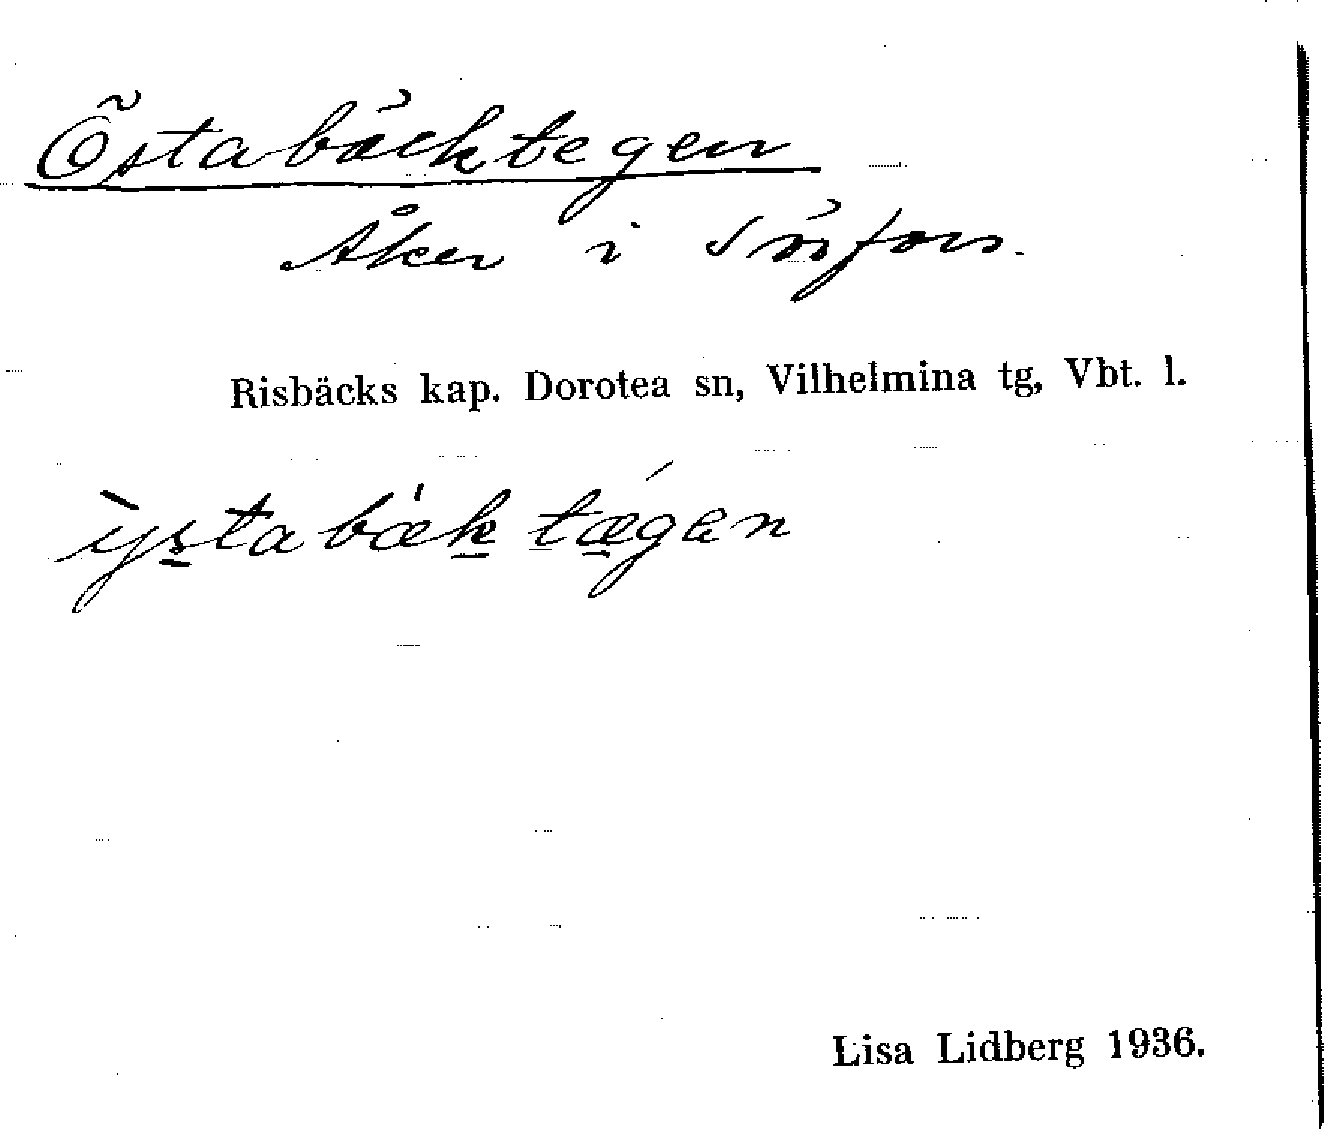 Östabäcktegen
Åker i Snöfors.
Risbäcks kap. Dorotea sn, Vilhelmina tg, Vbt. l.
ỳstabæk tægen
Lisa Lidberg 1936.